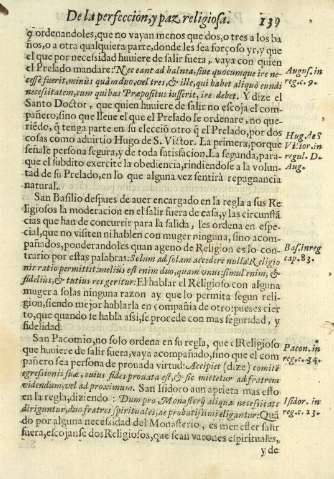 De la perfección, y paz religiosa. 139
q̃ ordenandoles, que no vayan menos que dos, o tres a los ba
ños, o a otra qualquiera parte, donde les sea forçoso yr, y que
el que por necessidad huuiere de salir fuera, vaya con quien
el Prelado mandare: Nec eant ad balnea, siue quocumque ire ne-
cesse fuerit, minùs quàm duo, vel tres, & ille, qui habet aliquò eundi
necessitatem, cum quibus Præpositus iusserit, ire debet. Y dize el
Santo Doctor, que quien huuiere de salir no escoja el com
pañero, sino que lleue el que el Prelado le ordenare, no que
riēdo, q̃ tenga parte en su elecciō otro q̃ el Prelado, por dos
cosas como aduirtio Hugo de S. Victor. La primera, porque
señale persona segura, y de toda satisfacion. La segunda, para
que el subdito exercite la obediencia, rindiendose a la volun
tad de su Prelado, en lo que alguna vez sentirà repugnancia
natural.
San Basilio despues de auer encargado en la regla a sus Re
ligiosos la moderacion en el salir fuera de casa, y las circunstā
cias que han de concurrir para la salida, les ordena en espe-
cial, que no visiten ni hablen con muger ninguna, sino acom
pañados, ponderandoles quan ageno de Religion es lo con-
trario por estas palabras: Solum ad solam accedere nulla Religio
nis ratio permittit: melius est enim duo, quam vnus: simul enim, &
fidelius, & tutius res geritur: El hablar el Religioso con alguna
muger a solas ninguna razon ay que lo permita segun reli-
gion, siendo mejor hablarla en cōpañia de otro: pues es cier
to, que quando se habla assi, se procede con mas seguridad, y
fidelidad.
San Pacomio, no solo ordena en su regla, que el Religioso
que huuiere de salir fuera, vaya acompañado, sino que el com
pañero sea persona de prouada virtud: Accipiet (dize)
egressionis suæ, cuius fides prouata est, & sic mittetur ad fratrem
videndum, vel ad proximum. San Isidoro aun aprieta mas esto
en la regla, diziendo: Dum pro Monasterij aliqua necessitate
diriguntur, duo fratres spirituales, ac probatissimi eligantur: Quā
do por alguna necessidad del Monasterio, es menester salir
fuera, escojanse dos Religiosos, que sean varones espirituales,
y de
Augus. in
reg. c. 9.
Hug. de S.
Victor. in
regul. D.
Aug.
Bas. in reg
cap. 83.
Pacon. in
reg. c. 34.
Isidor. in
reg. c. 23.